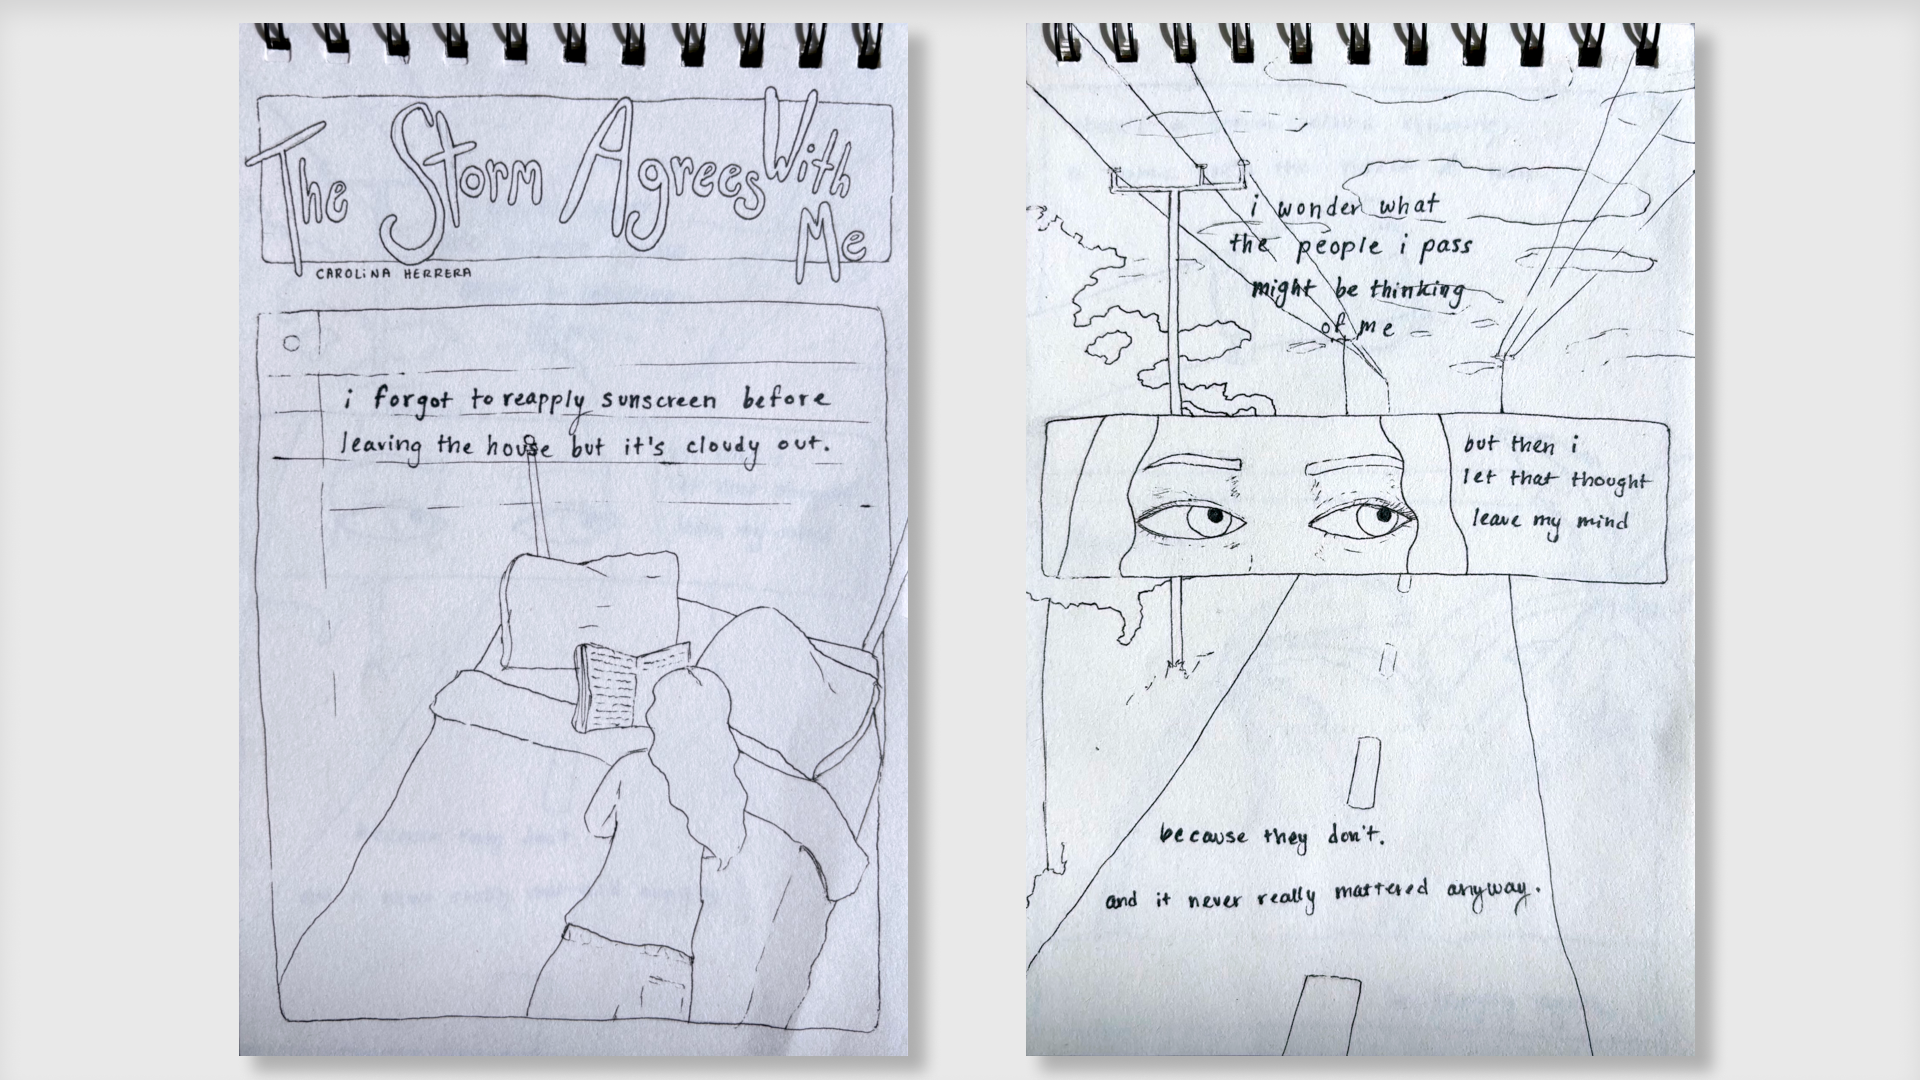 The Storm Agrees With
Me
CAROLINA HERRERA
i forgot to reapply sunscreen before
leaving the house but it's cloudy out.
i wonder what
the people i pass
might be thinking
of me
but then i
let that thought
leave my mind
because they don't.
and it never really mattered anyway.